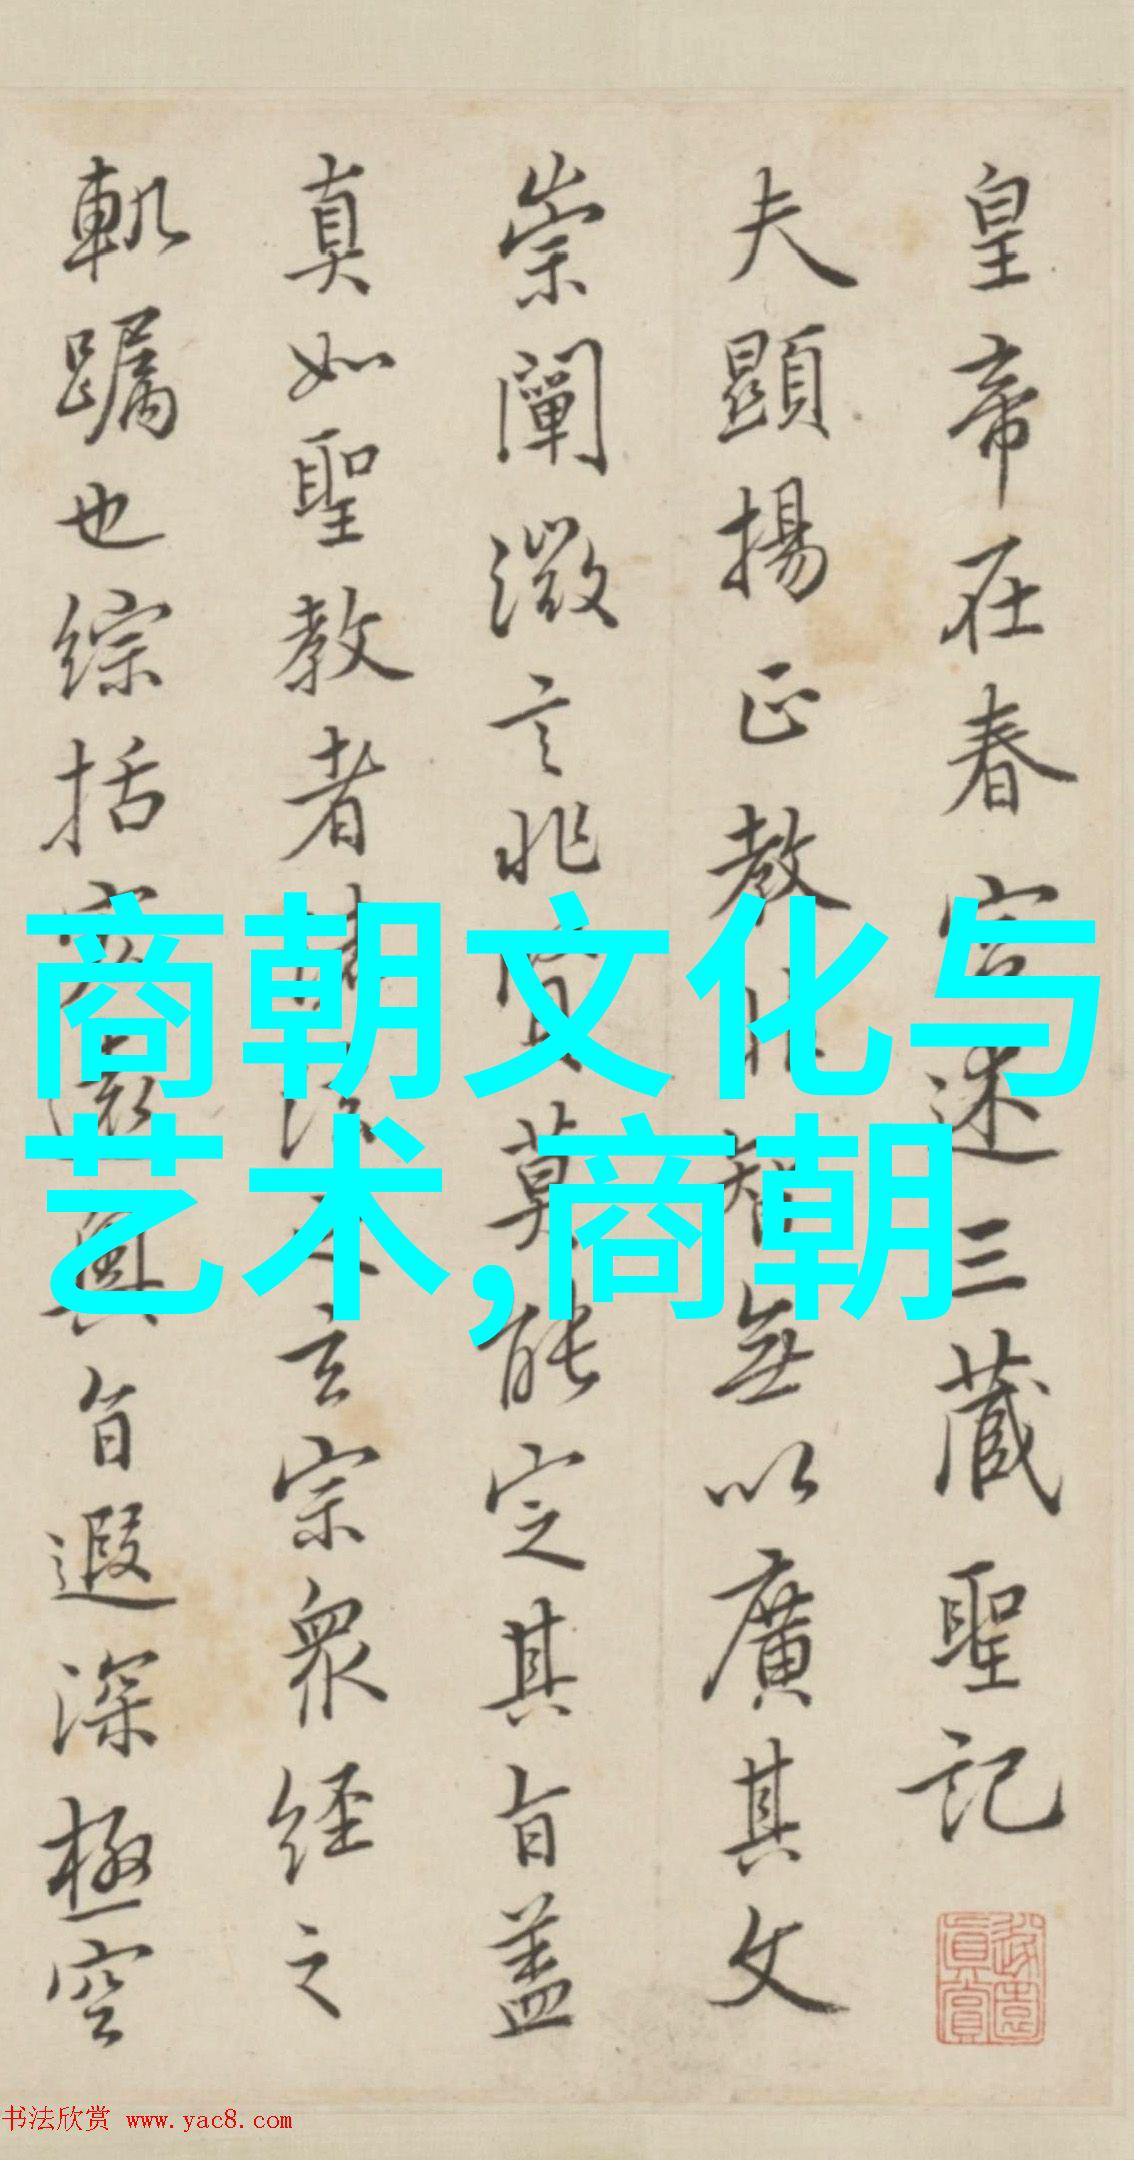 皇帝在春宮述三藏聖記
夫顯揚正教非智無以廣其文
崇闡微言非賢莫能定其旨蓋
真如聖教者諸法之玄宗眾經之
軌躅也綜括宏遠奧旨遐深極空
商朝文化与
艺术,商朝
真賞
书法欣赏 www.yac8.com